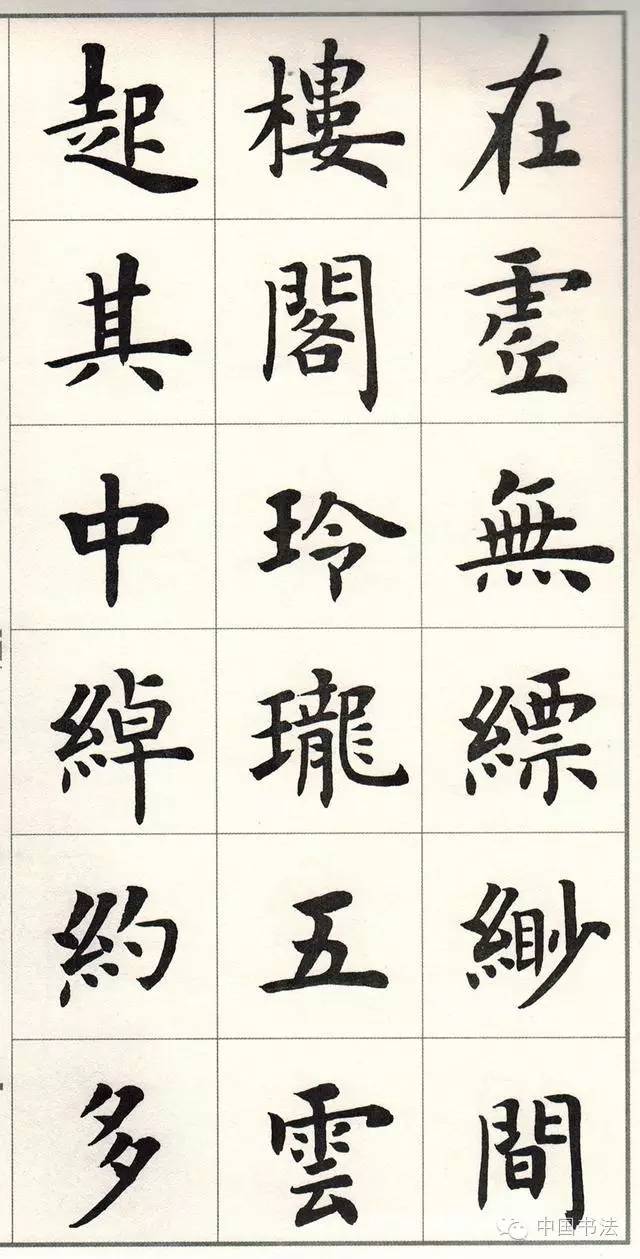 在虛無縹緲間
樓閣玲瓏五雲
起其中綽約多
中国书法